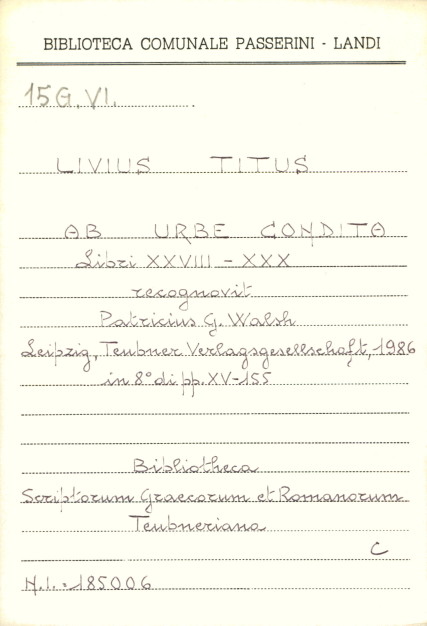 BIBLIOTECA COMUNALE PASSERINI - LANDI
15G.VI.
LIVIUS TITUS
AB URBE CONDITA
Libri XXVIII - XXX
recognovit
Patricius G. Walsh
Leipzig, Teubner Verlagsgesellschaft, 1986
in 8° di pp. XV-155
Bibliotheca
Scriptorum Graecorum et Romanorum
Teubneriana
C
N.I. : 185006